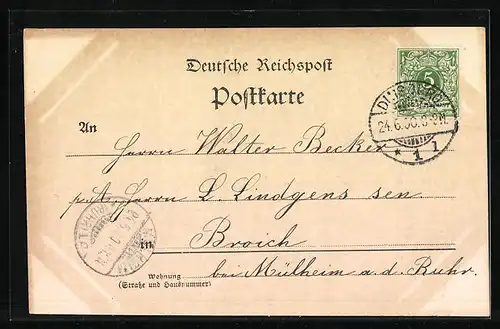 Deutsche Reichspost
Postkarte
5
DUISBURG
24.6.98.
* 1 l
An
Herrn Walter Becker
p. A. Herrn L. Lindgens sen.
in Broich
bei Mülheim a. d. Ruhr.
Wohnung
(Straße und Hausnummer)